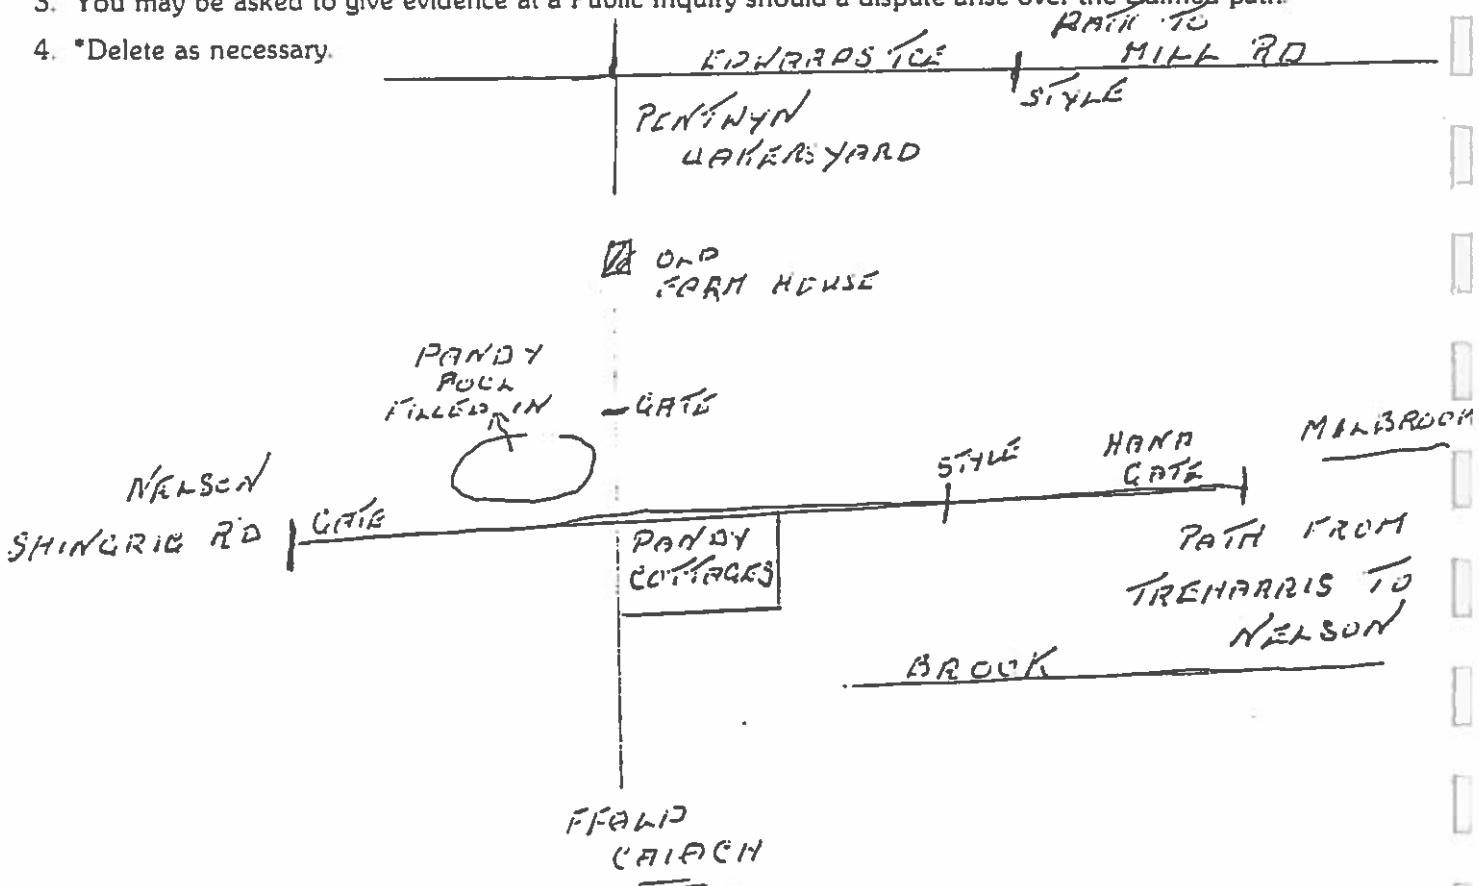 3. You may be asked to give evidence at a Public Inquiry should a dispute arise over the claimed path.
4. *Delete as necessary.
PATH TO
MILL RD
EDWARDS TCE
STYLE
PENTWYN
QAKERS YARD
OLD
FARM HOUSE
PANDY
POOL
FILLED IN
GATE
NELSON
SHINGRIG RD
GATE
STYLE
HAND
GATE
MALBROOK
PANDY
COTTAGES
PATH FROM
TREHARRIS TO
NELSON
BROOK
FFALD
CAIACH